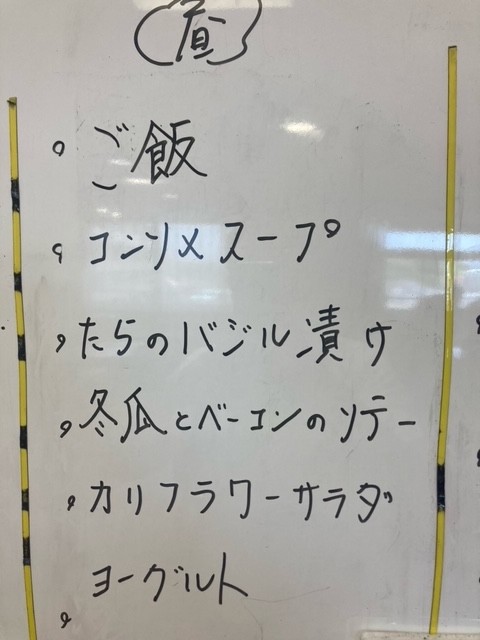 昼
。ご飯
。コンソメスープ
。たらのバジル漬け
。冬瓜とベーコンのソテー
。カリフラワーサラダ
。ヨーグルト